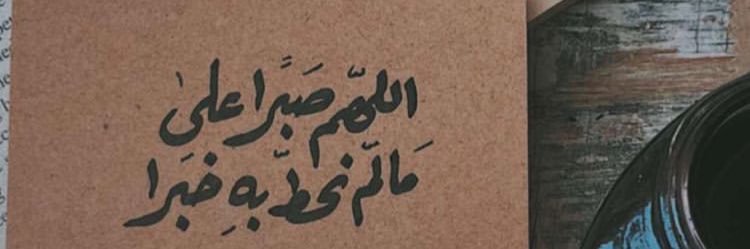 اللهم صَبرًا على
مَالم نحط بهِ خبرا